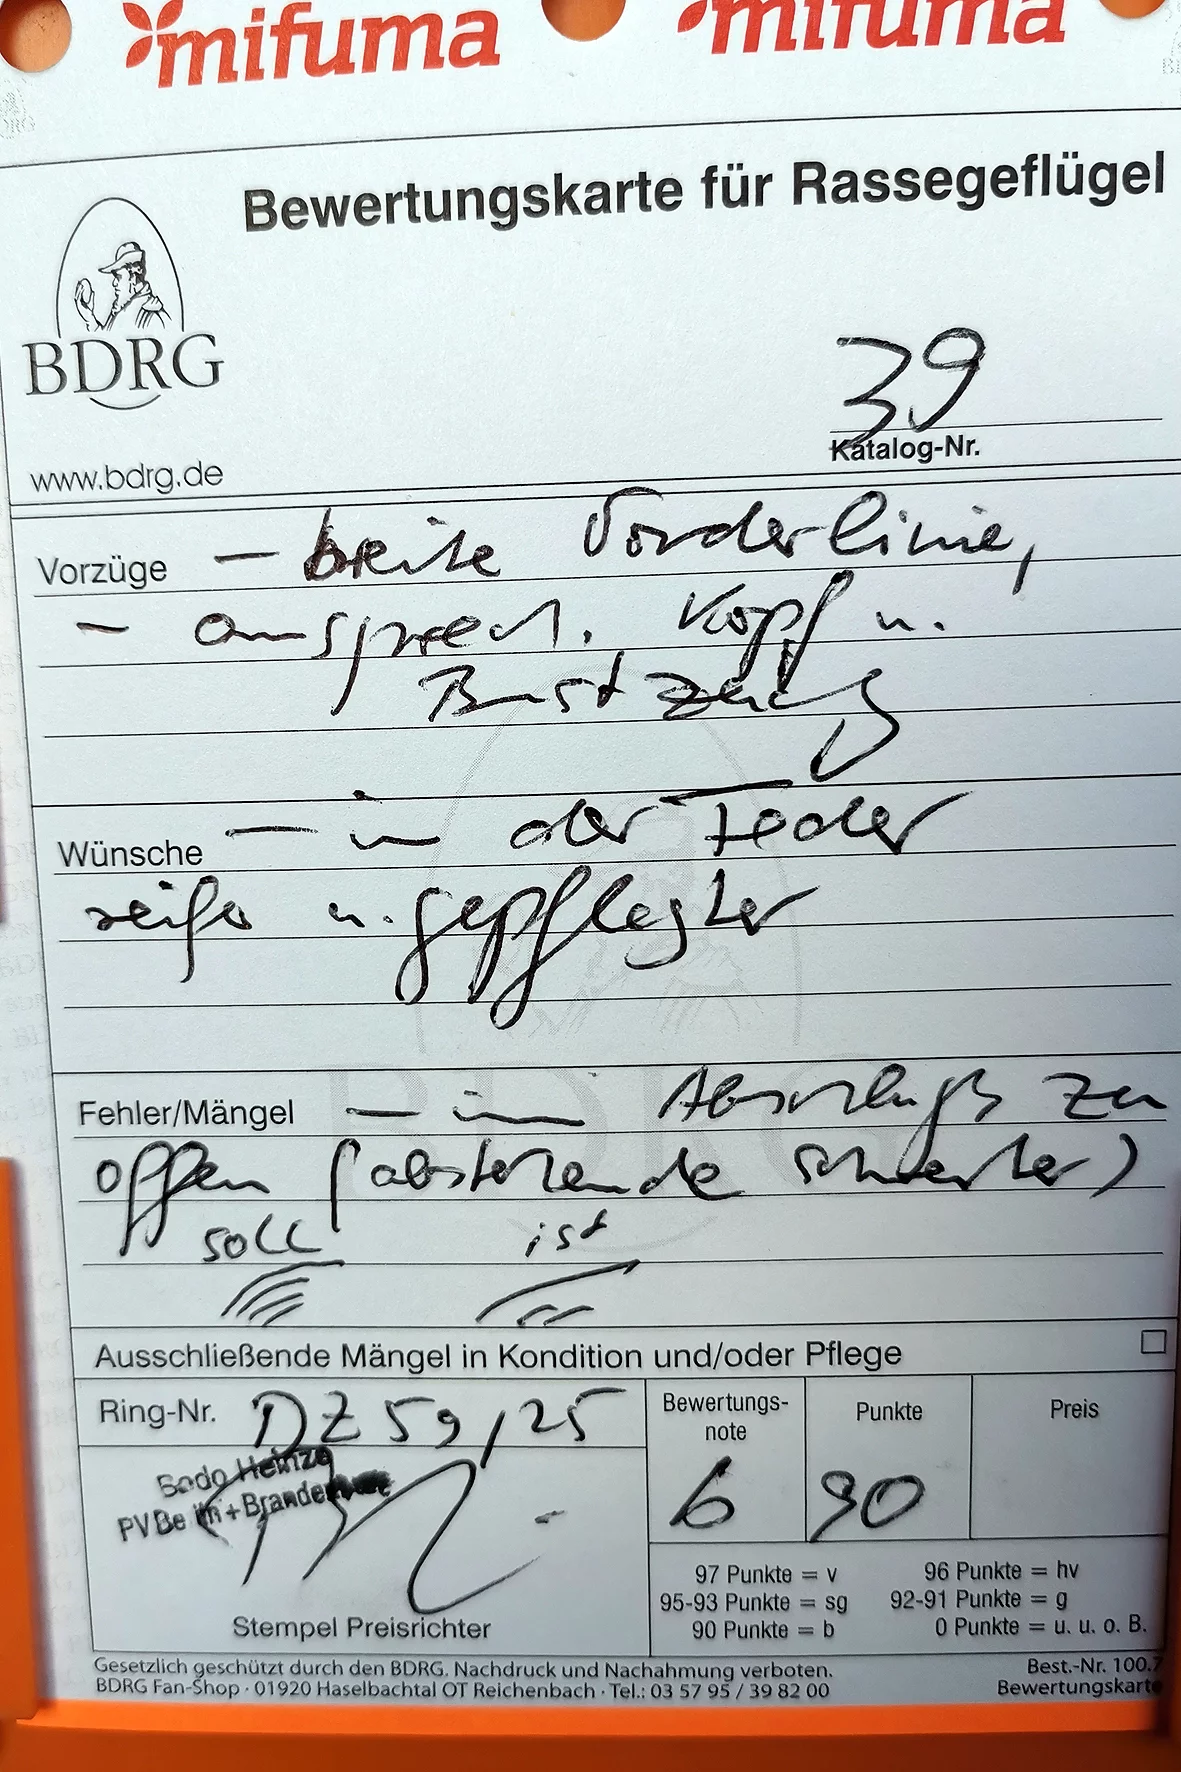 mifuma mifuma
Bewertungskarte für Rassegeflügel
BDRG
39
Katalog-Nr.
www.bdrg.de
Vorzüge – breite Vorderlinie,
– ansprech. Kopf u.
Brust
Wünsche – in der Feder
reifer u. gepflegter
Fehler/Mängel – im Abschluß zu
offen (abstehende Schwerter)
soll ist
Ausschließende Mängel in Kondition und/oder Pflege
Ring-Nr. DZ 59/25
Bewertungs-
note
Punkte
Preis
Bodo Heinze
b 90
Stempel Preisrichter
97 Punkte = v 96 Punkte = hv
95-93 Punkte = sg 92-91 Punkte = g
90 Punkte = b 0 Punkte = u. u. o. B.
Gesetzlich geschützt durch den BDRG. Nachdruck und Nachahmung verboten.
BDRG Fan-Shop · 01920 Haselbachtal OT Reichenbach · Tel.: 03 57 95 / 39 82 00
Best.-Nr. 100.7
Bewertungskarte